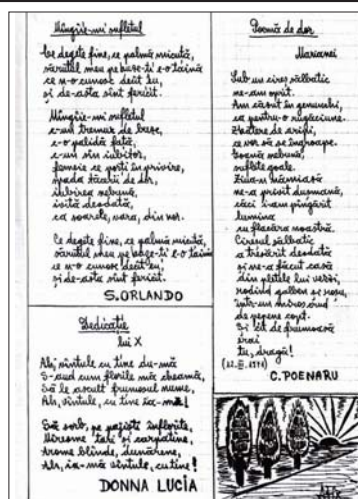 Mîngîie-mi sufletul
Ce degete fine, ce palmă micuță,
sărutul meu pe buze-ți e-o taină
ce n-o cunosc decît eu,
și de-asta sînt fericit.
Mîngîie-mi sufletul
c-un tremur de buze,
c-o palidă față,
c-un sîn iubitor,
femeie ce porți în privire,
spada tăcerii de dor,
iubirea nebună,
ivită deodată,
ca soarele, vara, din nor.
Ce degete fine, ce palmă micuță,
sărutul meu pe buze-ți e-o taină
ce n-o cunosc decît eu,
și de-asta sînt fericit.
S.ORLANDO
Dedicație
lui X
Ah, vîntule cu tine du-mă
S-aud cum florile mă cheamă,
Să le ascult frumosul nume,
Ah, vîntule, cu tine ia-mă!
Să sorb, pe pajiști înflorite,
Miresme tari și carpatine,
Arome blînde, dunărene,
Ah, ia-mă vîntule, cu tine!
DONNA LUCIA
Poemă de dor
Marianei
Sub un cireș sălbatic
ne-am oprit.
Am căzut în genunchi,
ca pentru-o rugăciune.
Zbatere de aripi,
ce vor să se îngroape.
Goană nebună,
suflete goale.
Ziua-n
ne-a privit dușmană,
căci i-am pîngărit
lumina
cu flacăra noastră.
Cireșul sălbatic
a tresărit deodată
și ne-a făcut casă
din pletele lui verzi,
rodind galben și roșu,
într-un miros crud
de pepene copt.
Și cît de frumoasă
erai
tu, dragă!
C.POENARU